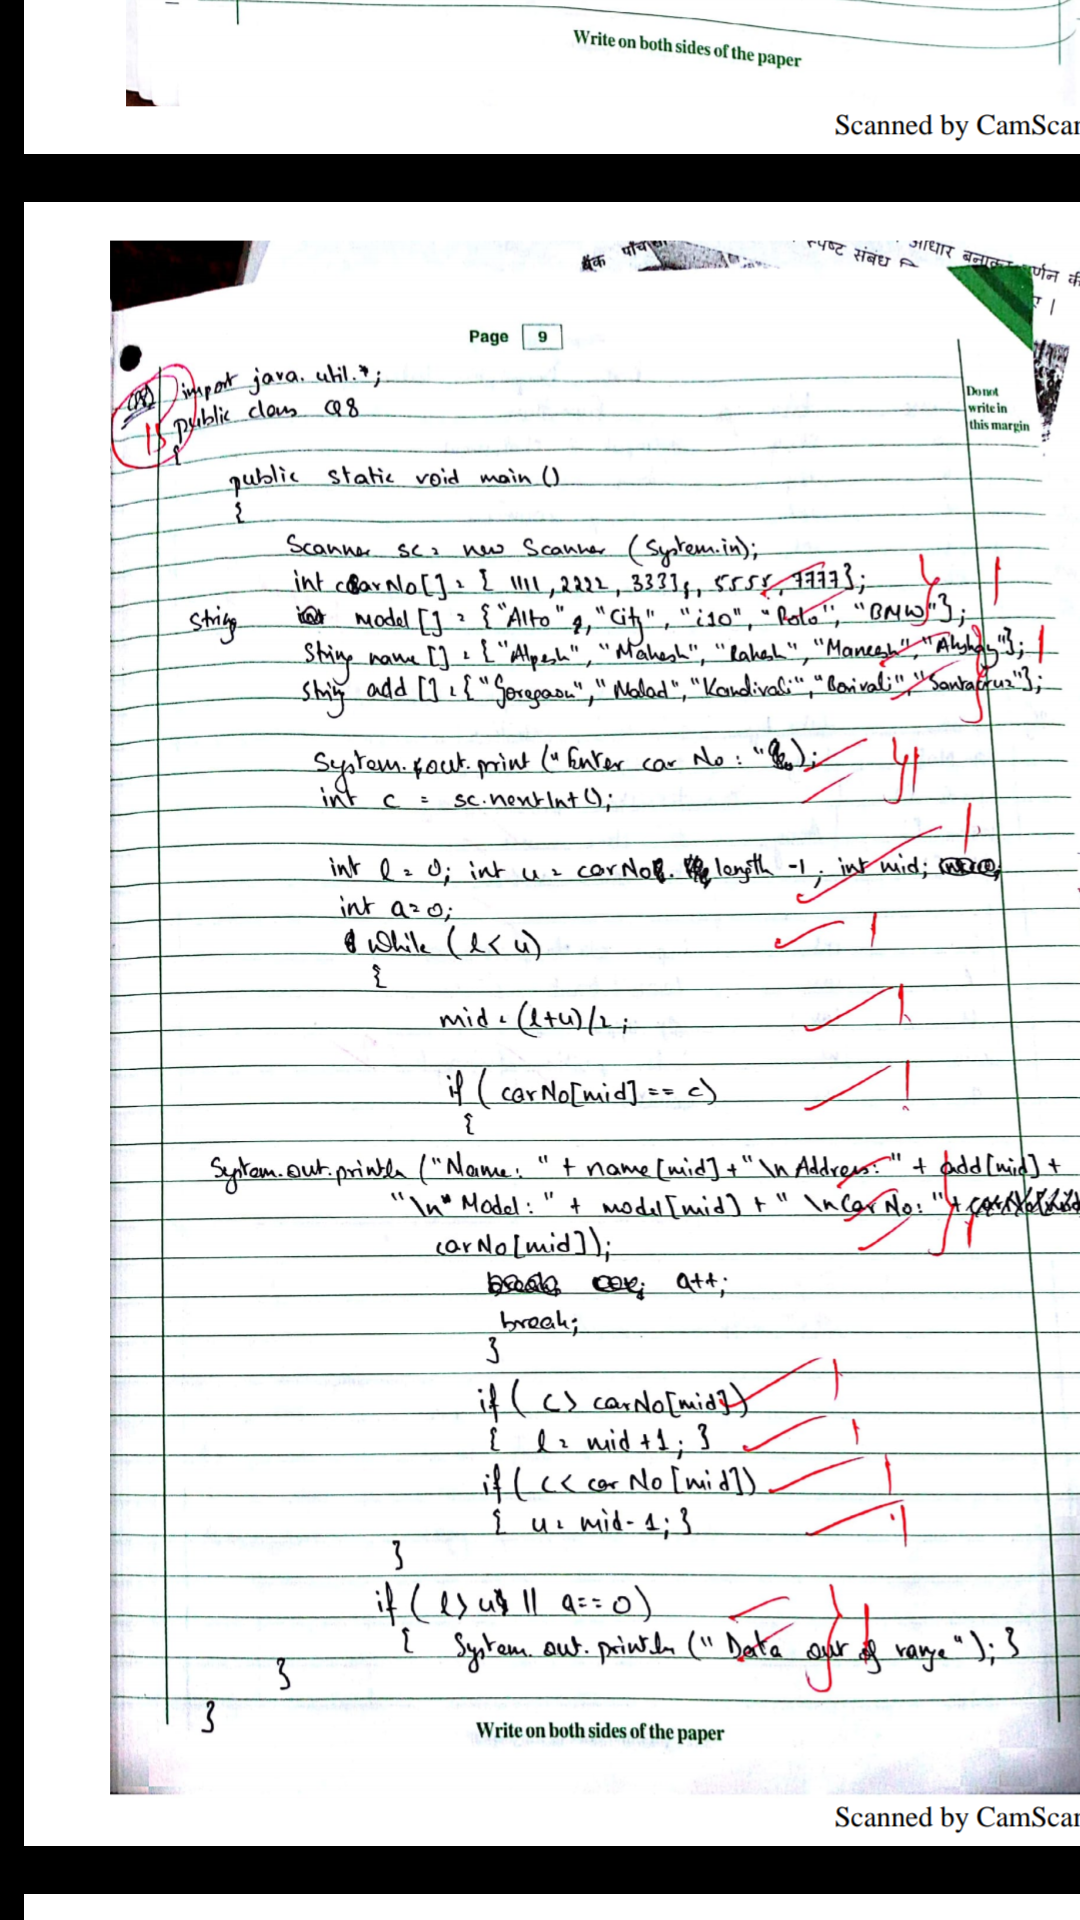 Write on both sides of the paper
Scanned by CamScan
बैंक पाँच स्पष्ट संबंध आधार बनाकर वर्णन की
Page 9
Do not
write in
this margin
Q8) import java.util.*;
15 public class Q8
{
public static void main ()
{
Scanner sc = new Scanner (System.in);
int carNo[] = { 1111, 2222, 3333, 5555, 7777};
String model [] = {"Alto", "City", "i10", "Polo", "BMW"};
String name [] = {"Alpesh", "Mahesh", "Rakesh", "Maneesh", "Akshay"};
String add [] = {"Goregaon", "Malad", "Kandivali", "Borivali", "Santacruz"};
System.out.print ("Enter car No : ");
int c = sc.nextInt();
int l = 0; int u = carNo.length -1; int mid;
int a=0;
while (l<u)
{
mid = (l+u)/2;
if (carNo[mid] == c)
{
System.out.println ("Name: " + name[mid] + "\n Address: " + add[mid] +
"\n Model: " + model[mid] + " \nCar No: " +
carNo[mid]);
a++;
break;
}
if ( c> carNo[mid])
{ l = mid+1; }
if ( c< car No [mid])
{ u = mid-1; }
}
if ( l>u || a==0)
{ System.out.println (" Data out of range "); }
}
}
Write on both sides of the paper
Scanned by CamScan